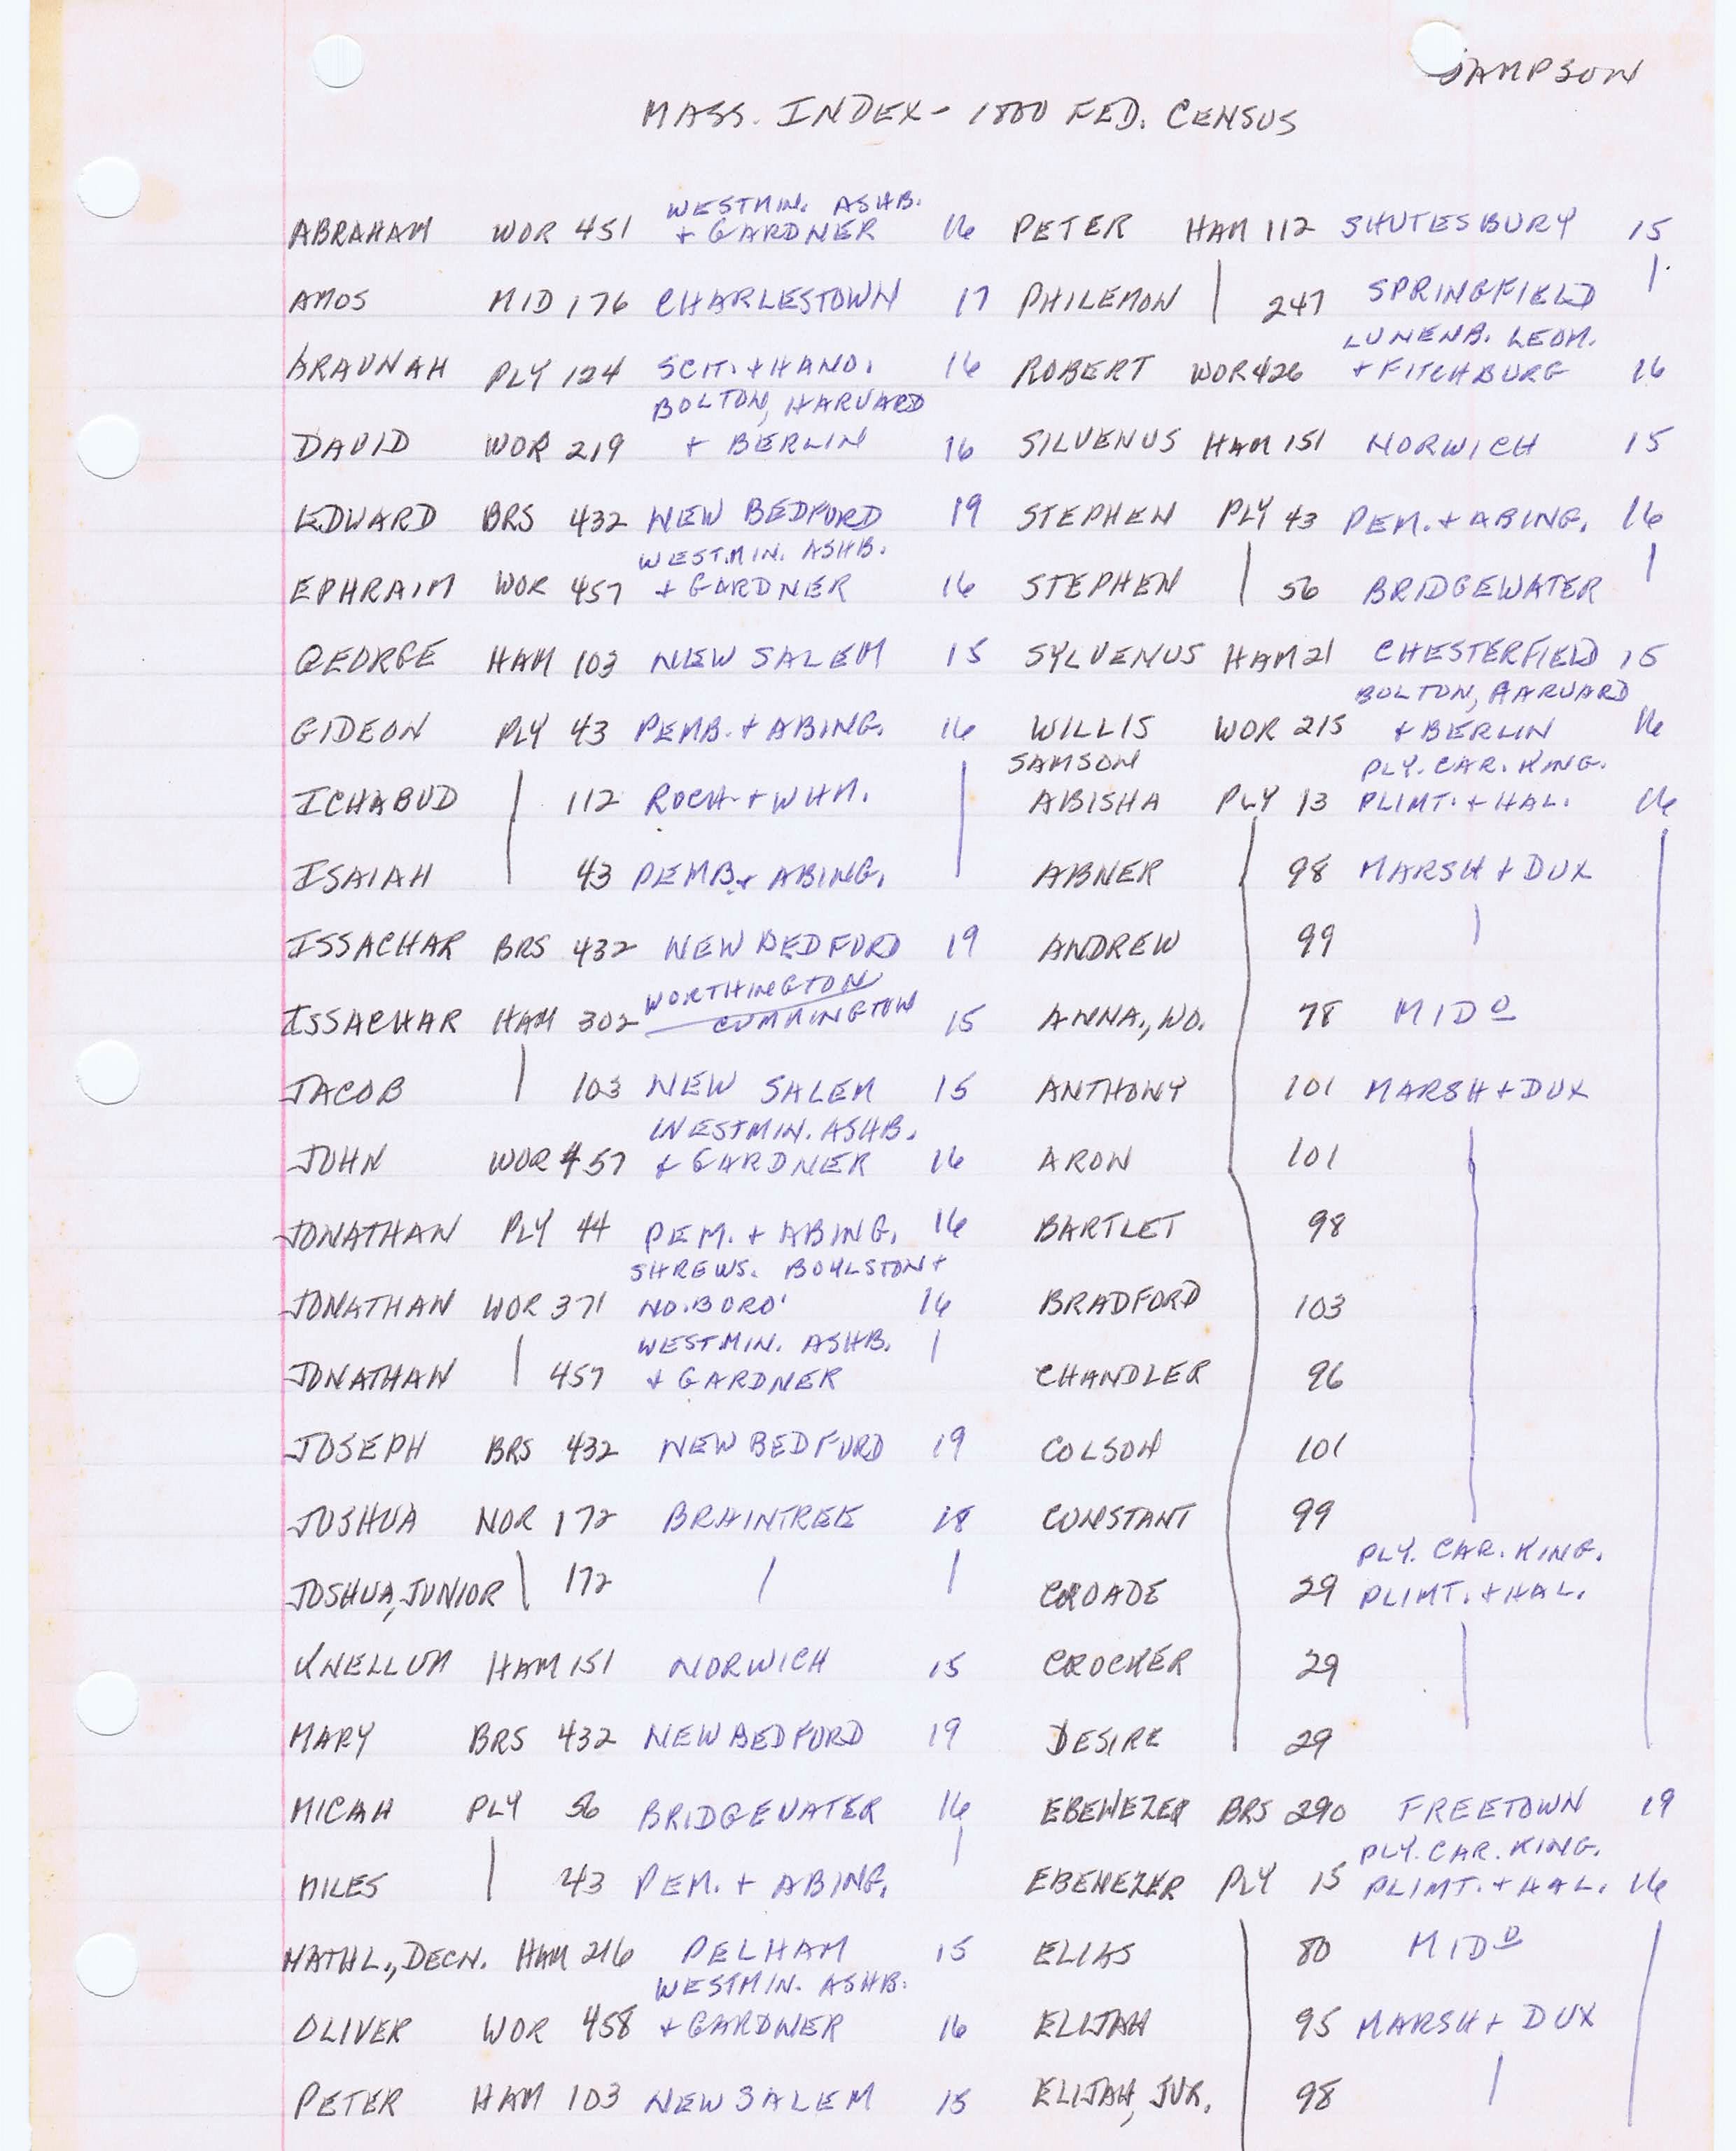 SAMPSON
MASS. INDEX - 1800 FED. CENSUS
WESTMIN. ASHB.
ABRAHAM WOR 451 + GARDNER 16
AMOS MID 176 CHARLESTOWN 17
ARAUNAH PLY 124 SCIT. + HANO. 16
BOLTON, HARVARD
DAVID WOR 219 + BERLIN 16
EDWARD BRS 432 NEW BEDFORD 19
WESTMIN. ASHB.
EPHRAIM WOR 457 + GARDNER 16
GEORGE HAM 103 NEW SALEM 15
GIDEON PLY 43 PEMB. + ABING. 16
ICHABUD 112 ROCH. + WHM.
ISAIAH 43 PEMB. + ABING.
ISSACHAR BRS 432 NEW BEDFORD 19
WORTHINGTON
ISSACHAR HAM 302 CUMMINGTON 15
JACOB 103 NEW SALEM 15
WESTMIN. ASHB.
JOHN WOR 457 + GARDNER 16
JONATHAN PLY 44 PEM. + ABING. 16
SHREWS. BOYLSTON +
JONATHAN WOR 371 NO. BORO' 16
WESTMIN. ASHB.
JONATHAN 457 + GARDNER
JOSEPH BRS 432 NEW BEDFORD 19
JOSHUA NOR 172 BRAINTREE 18
JOSHUA, JUNIOR 172
KNELLUM HAM 151 NORWICH 15
MARY BRS 432 NEW BEDFORD 19
MICAH PLY 56 BRIDGEWATER 16
MILES 43 PEM. + ABING.
NATHL., DECN. HAM 216 PELHAM 15
WESTMIN. ASHB.
OLIVER WOR 458 + GARDNER 16
PETER HAM 103 NEW SALEM 15
PETER HAM 112 SHUTESBURY 15
PHILEMON 247 SPRINGFIELD
LUNENB. LEOM.
ROBERT WOR 426 + FITCHBURG 16
SILVENUS HAM 151 NORWICH 15
STEPHEN PLY 43 PEM. + ABING. 16
STEPHEN 56 BRIDGEWATER
SYLVENUS HAM 21 CHESTERFIELD 15
BOLTON, HARVARD
WILLIS WOR 215 + BERLIN 16
SAMSON PLY. CAR. KING.
ABISHA PLY 13 PLIMT. + HAL. 16
ABNER 98 MARSH + DUX
ANDREW 99
ANNA., WD. 78 MIDO
ANTHONY 101 MARSH + DUX
ARON 101
BARTLET 98
BRADFORD 103
CHANDLER 96
COLSON 101
CONSTANT 99
PLY. CAR. KING.
CROADE 29 PLIMT. + HAL.
CROCKER 29
DESIRE 29
EBENEZER BRS 290 FREETOWN 19
PLY. CAR. KING.
EBENEZER PLY 15 PLIMT. + HAL. 16
ELIAS 80 MIDO
ELIJAH 95 MARSH + DUX
ELIJAH, JUR. 98